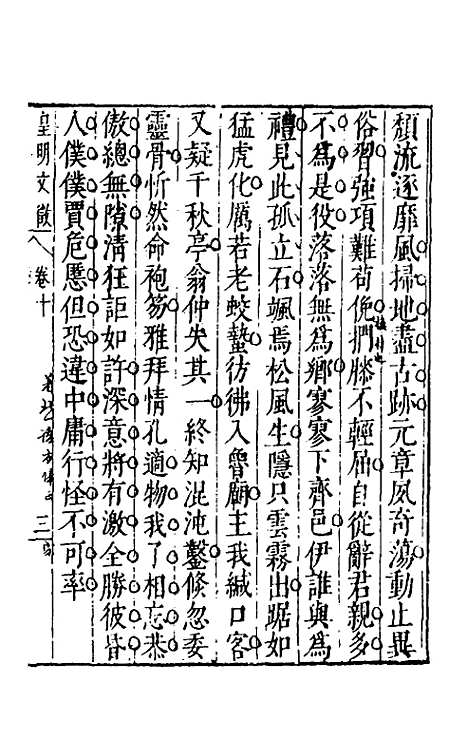 頹流逐靡風掃地盡古跡元章夙奇蕩動止異
俗習強項難苟俛捫膝不輕屈自從辭君親多
不為是役落落無為鄉寥寥下齊邑伊誰與為
禮見此孤立石颯焉松風生隱只雲霧出踞如
猛虎化厲若老蛟蟄彷彿入睂顧主我緘口客
又疑千秋亭翁仲失其一終知混沌鑿倏忽委
靈骨忻然命袍笏雅拜情孔適物我了相忘恭
傲總無隙清狂詎如許深意將有激全勝彼昏
人僕僕賈危慼但恐違中庸行怪不可率
皇明文徵 卷十 三